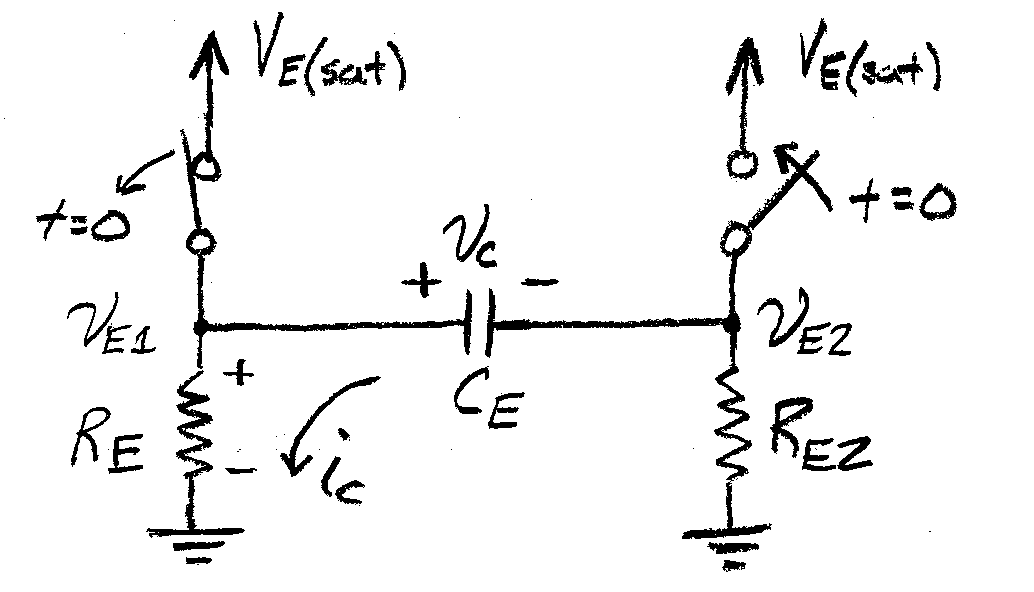 V_E(sat)
V_E(sat)
t=0
t=0
+ v_c -
v_E1
v_E2
+
C_E
R_E
R_E2
-
i_c